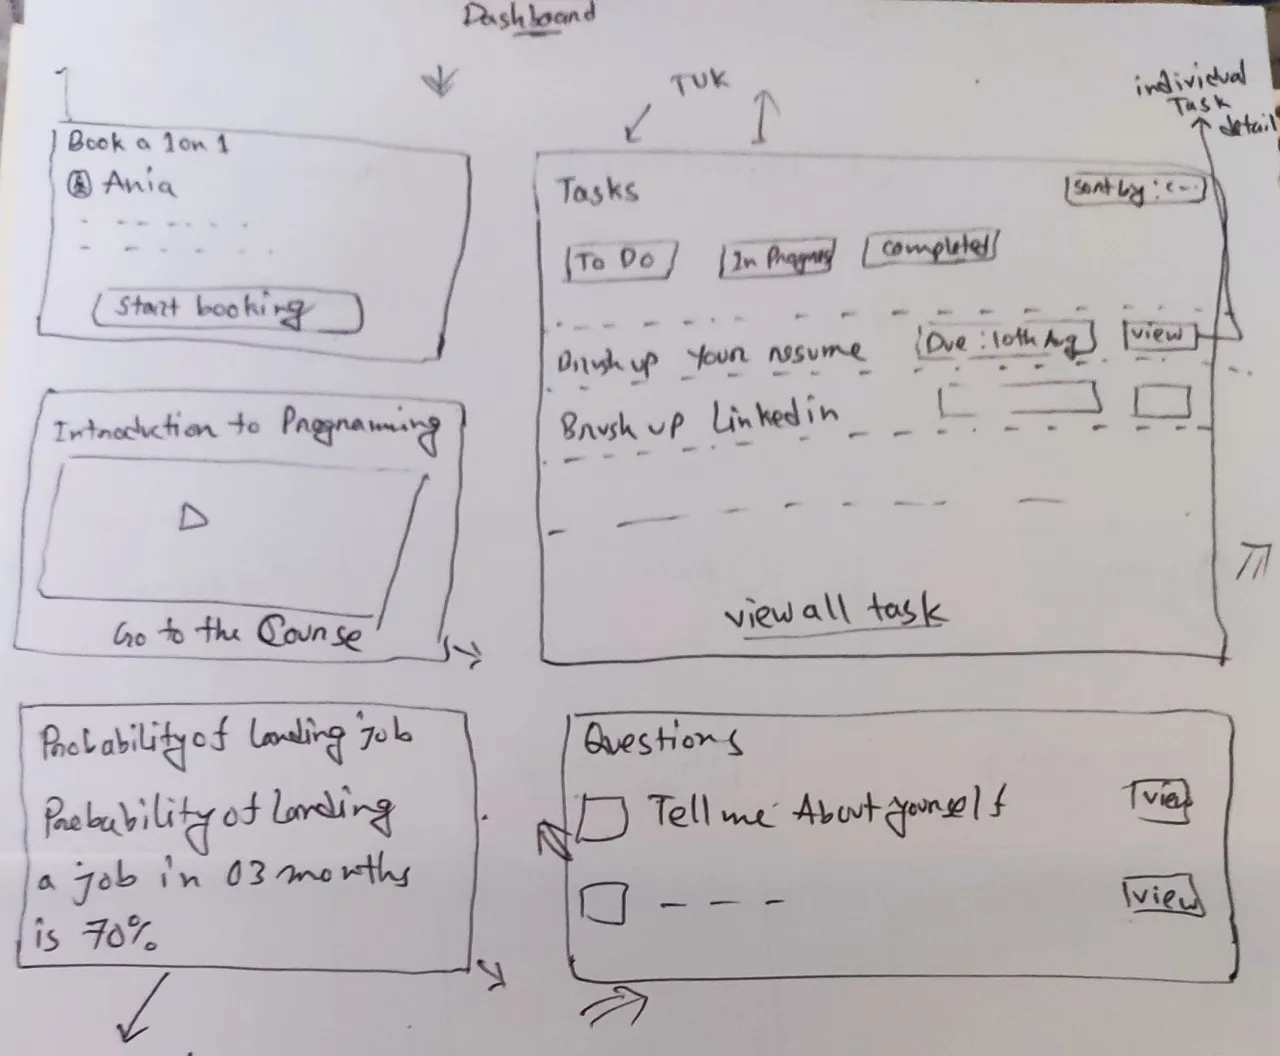 Dashboard
TUK
individual
Task
detail
Book a 1 on 1
Ania
Start booking
Introduction to Programming
Go to the Course
Probability of landing job
Probability of landing
a job in 03 months
is 70%
Tasks
Sort by :
To Do
In Progress
Completed
Brush up your resume
Due : 10th Aug
view
Brush up Linkedin
view all task
Questions
Tell me About yourself
view
view